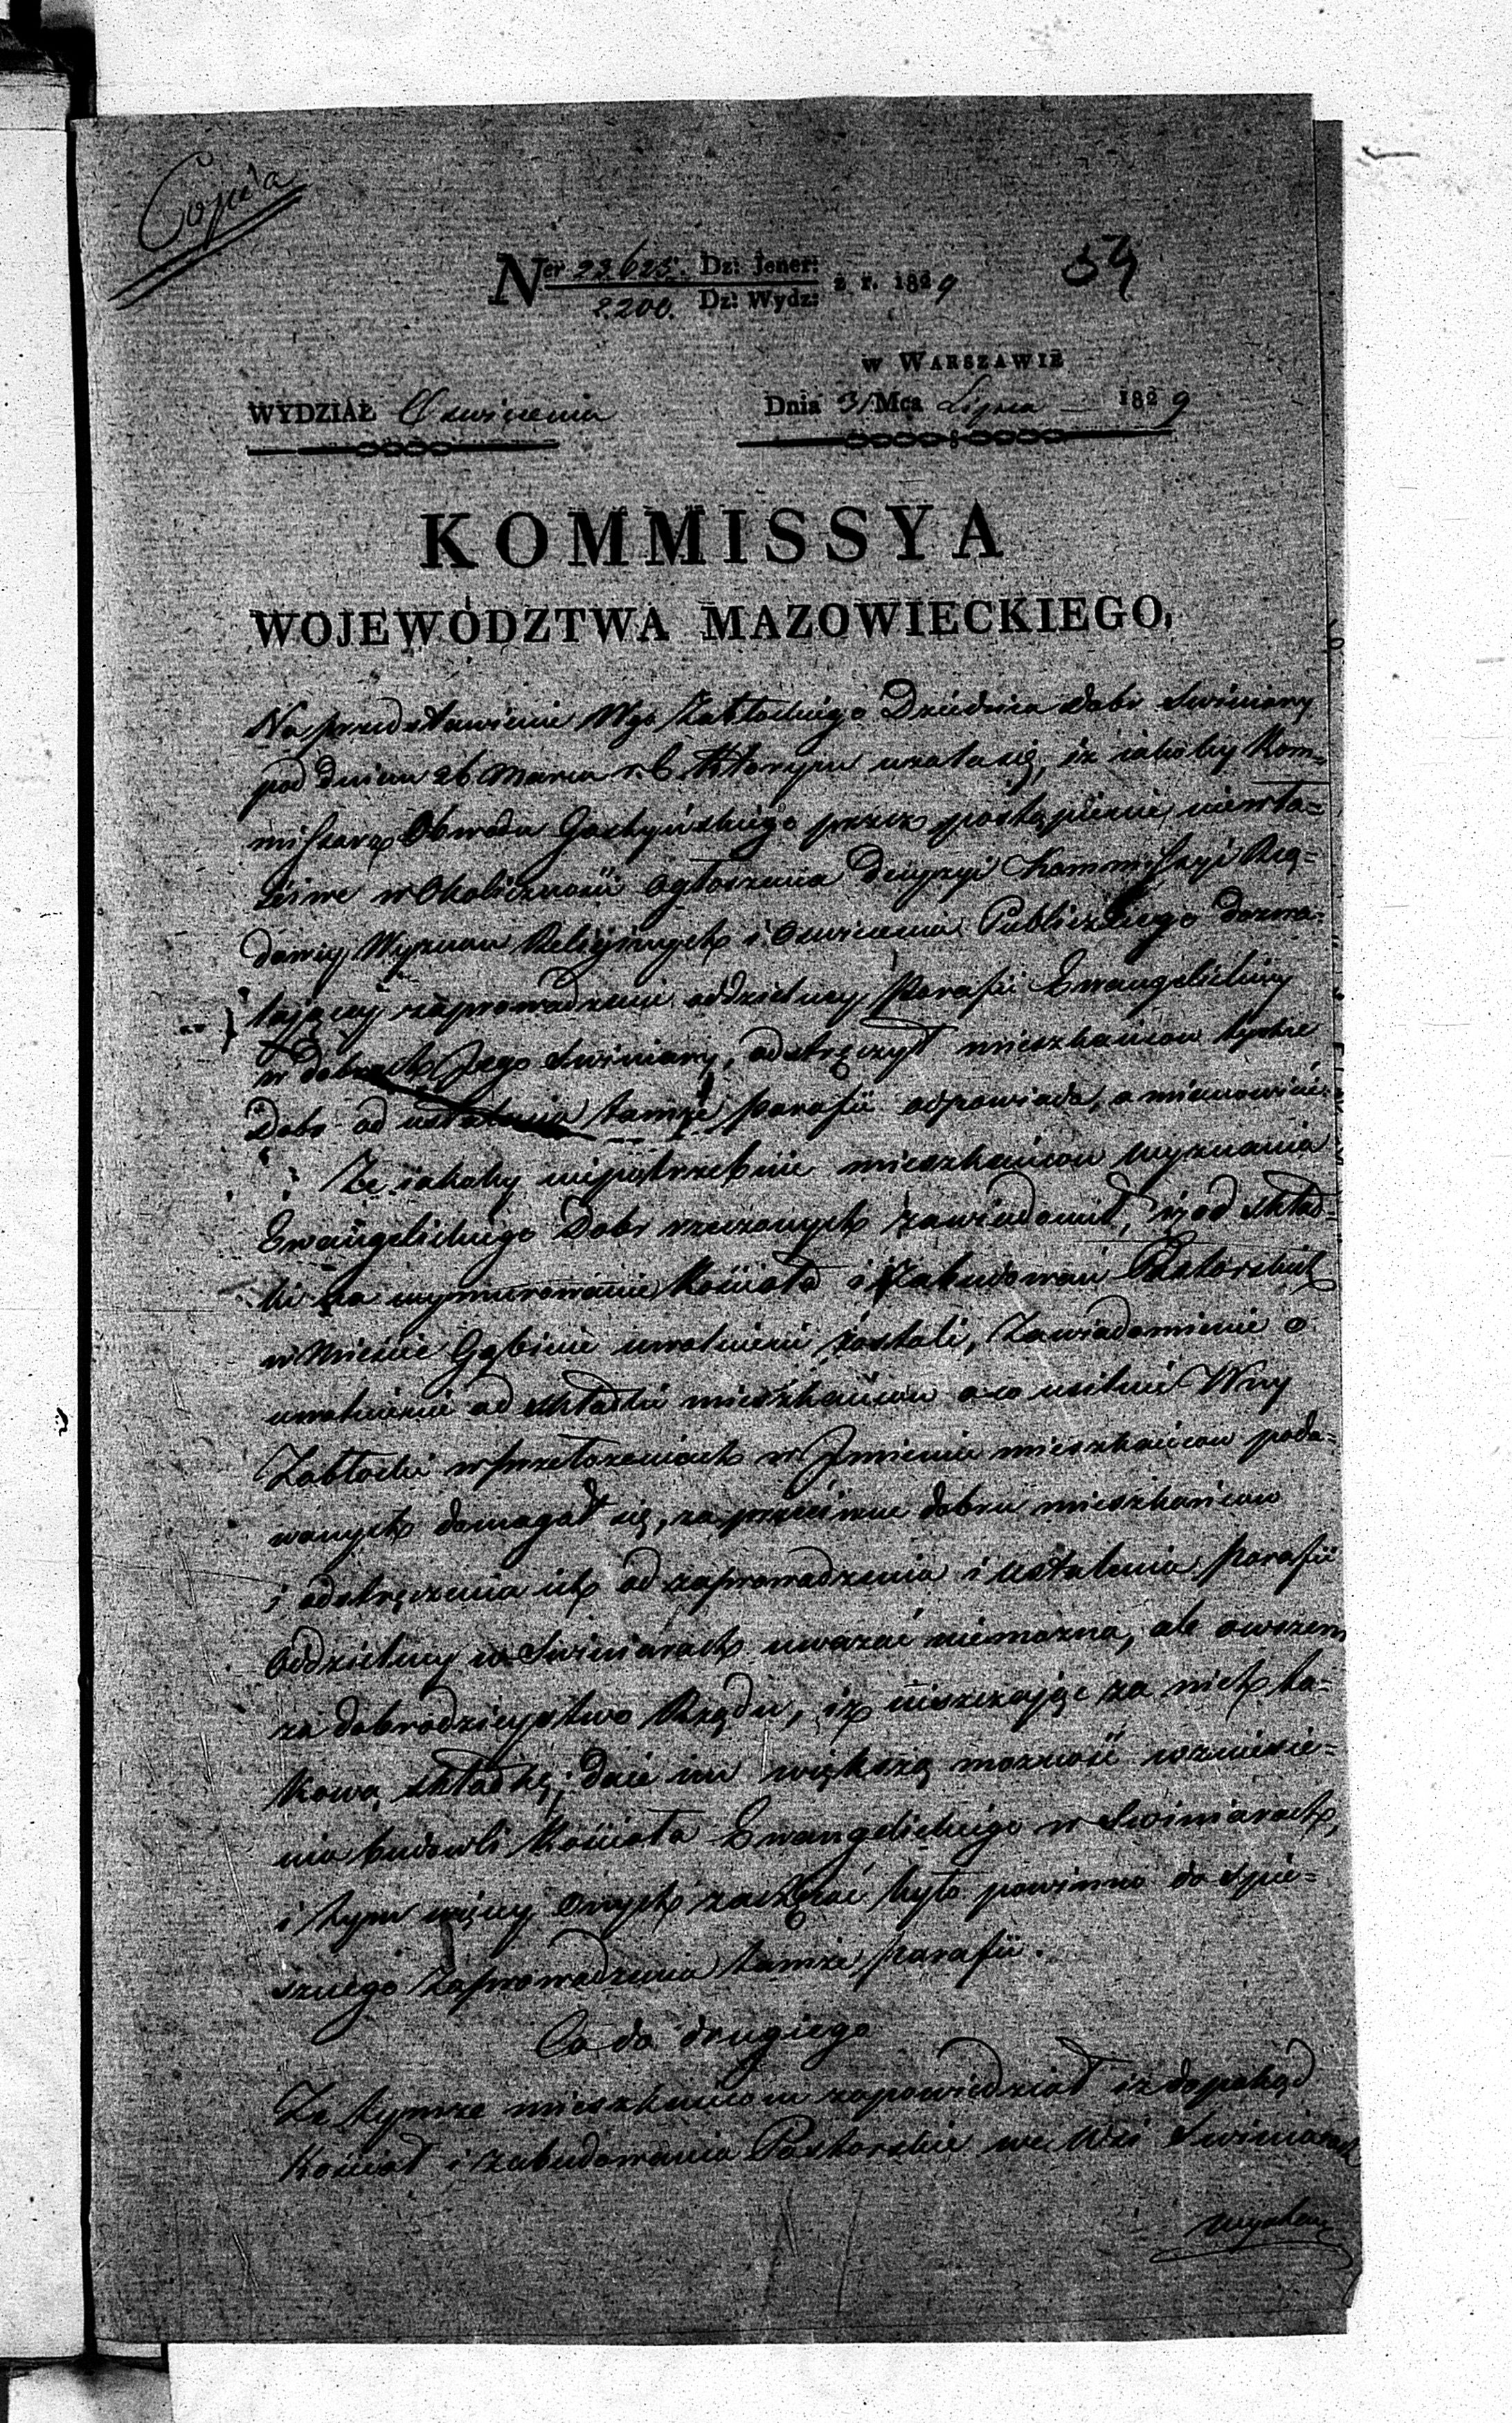 Copia
Ner 23625. Dz: Jener: z r. 1829
2200. Dz: Wydz:
59
w Warszawie
WYDZIAŁ Oswiecenia
Dnia 31 Mca Lipca 1829
KOMMISSYA
WOJEWÓDZTWA MAZOWIECKIEGO,
Na przedstawienie Wgo Zabłockiego Dziedzica Dobr Swiniary
pod dniem 26 Marca r. b. w którym użala się, iż iakoby Kom=
missarz Obwodu Gostyńskiego przez postąpienie niewła=
ściwe w Okoliczności Ogłoszenia decyzyi Kommissyi Rzą=
dowey Wyznan Religijnych i Oswiecenia Publicznego dozwa=
lającey zaprowadzenie oddzielney Parafii Ewangelickiey
w dobrach Jego Swiniary, odstręczył mieszkańcow tychże
Dobr od ustalenia tamże Parafii odpowiada, a mianowicie:
Że iakoby niepotrzebnie mieszkańcow wyznania
Ewangelickiego Dobr rzeczonych zawiadomił, iż od skład=
ki na wymurowanie Kościoła i Zabudowań Pastorskich
w Mieście Gąbinie uwolnieni zostali, Zawiadomienie o
uwolnieniu od składki mieszkańcow o co usilnie Wny
Zabłocki w przełożeniach w Jmieniu mieszkańcow poda=
wanych domagał się, za przeciwne dobru mieszkańcow
i odstręczenia ich od zaprowadzenia i ustalenia Parafii
Oddzielney w Swiniarach uważać niemożna, ale owszem
za dobrodzieystwo Rządu, iż uiszczając za nich ta=
kową składkę; daie im większą możność wzniesie=
nia budowli Kościoła Ewangelickiego w Swiniarach,
i tym więcey Onych zachęcać było powinno do spie=
sznego Zaprowadzenia tamże Parafii.
Co do drugiego
Że tymże mieszkańcom zapowiedział iż dopokąd
Kościoł i zabudowania Pastorskie we Wsi Swiniarach